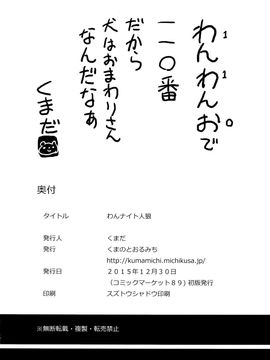 わんわんおで
110
一一〇番
だから
犬はおまわりさん
なんだなぁ
くまだ
奥付
タイトル わんナイト人狼
発行人 くまだ
発行 くまのとおるみち
http://kumamichi.michikusa.jp/
発行日 2015年12月30日
(コミックマーケット89) 初版発行
印刷 スズトウシャドウ印刷
※無断転載・複製・転売禁止